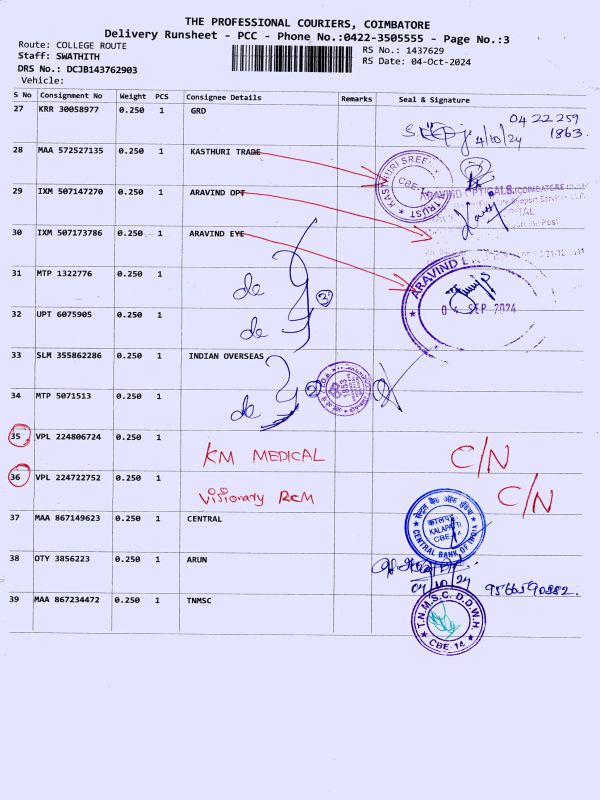 THE PROFESSIONAL COURIERS, COIMBATORE
Delivery Runsheet - PCC - Phone No.:0422-3505555 - Page No.:3
Route: COLLEGE ROUTE
RS No.: 1437629
Staff: SWATHITH
RS Date: 04-Oct-2024
DRS No.: DCJB143762903
Vehicle:
S No Consignment No Weight PCS Consignee Details Remarks Seal & Signature
27 KRR 30058977 0.250 1 GRD
04 22 259
4/10/24 1863.
28 MAA 572527135 0.250 1 KASTHURI TRADE
KASTHURI SREE TRUST CBE-14
29 IXM 507147270 0.250 1 ARAVIND OPT
ARAVIND OPTICALS, COIMBATORE
30 IXM 507173786 0.250 1 ARAVIND EYE
ARAVIND
04 SEP 2024
31 MTP 1322776 0.250 1
do
2
32 UPT 6075905 0.250 1
do
33 SLM 355862286 0.250 1 INDIAN OVERSEAS
2
1853
34 MTP 5071513 0.250 1
do
35 VPL 224806724 0.250 1
KM MEDICAL C/N
36 VPL 224722752 0.250 1
Visionary RCM C/N
37 MAA 867149623 0.250 1 CENTRAL
सेन्ट्रल बैंक ऑफ इंडिया
KALAPATTI
CBE
CENTRAL BANK OF INDIA
38 OTY 3856223 0.250 1 ARUN
04/10/24 9566590882.
39 MAA 867234472 0.250 1 TNMSC
T.N.M.S.C. D.D.W.H
CBE-14